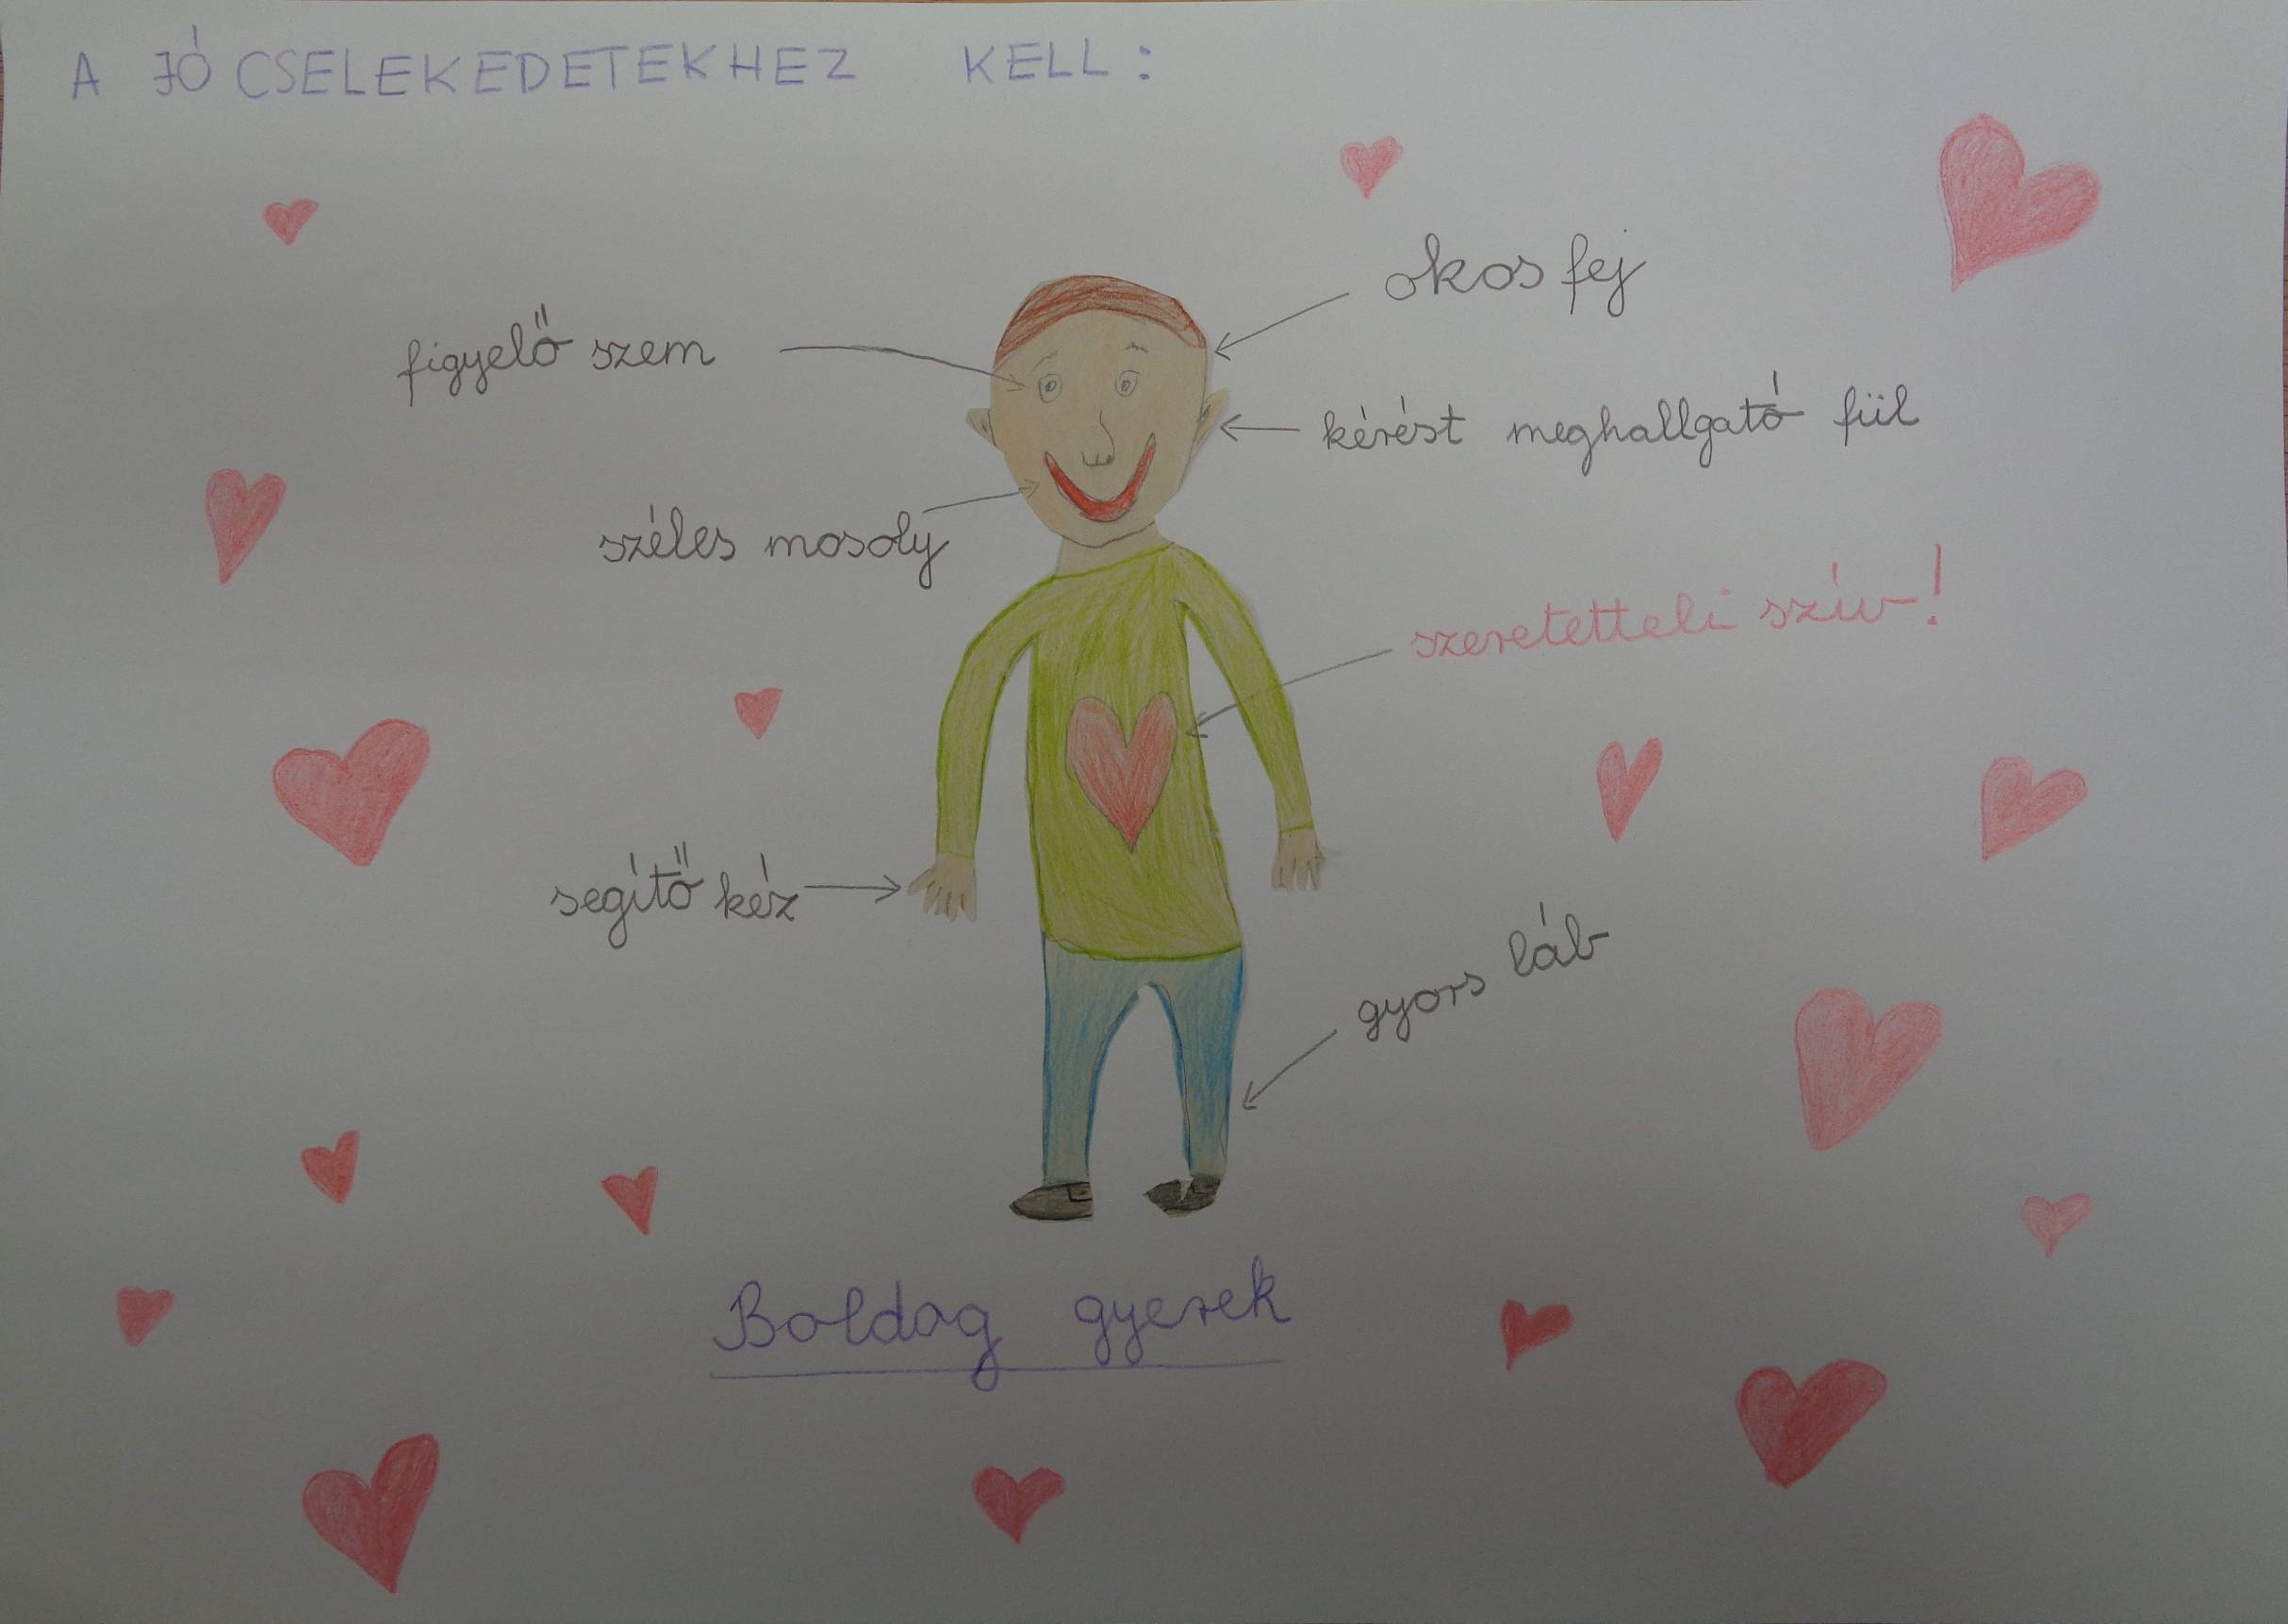 A JÓ CSELEKEDETEKHEZ KELL:
okos fej
figyelő szem
kérést meghallgató fül
széles mosoly
szeretetteli szív!
segítő kéz
gyors láb
Boldog gyerek